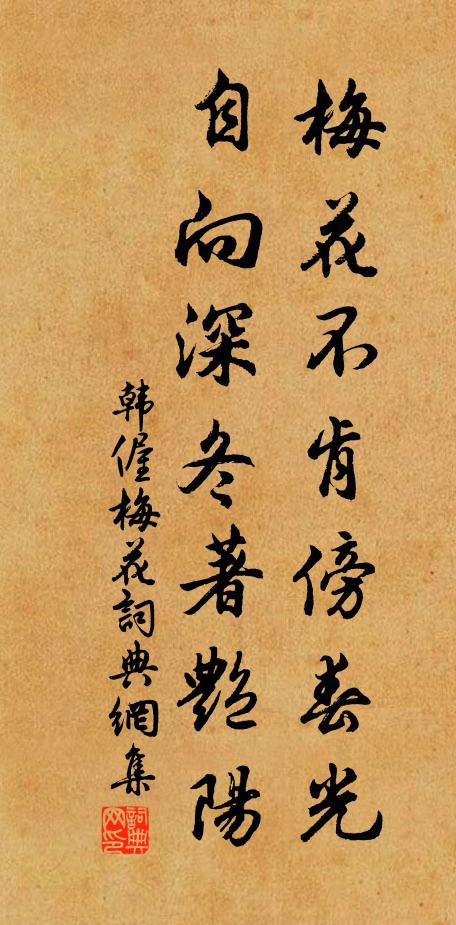 梅花不肯傍春光
自向深冬著艷陽
韩偓梅花詞典網集
詞典网印